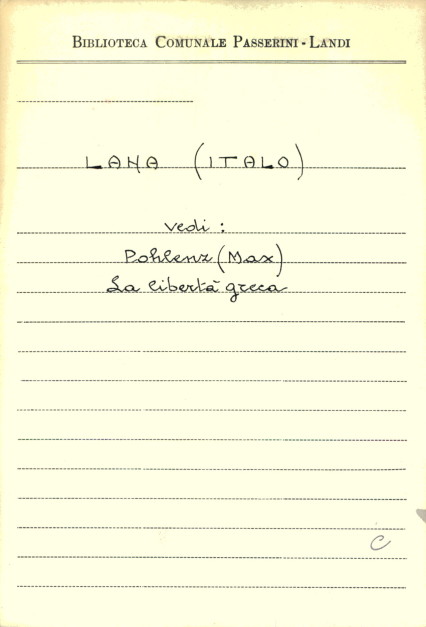 BIBLIOTECA COMUNALE PASSERINI - LANDI
LANA (ITALO)
vedi :
Pohlenz (Max)
La libertà greca
C